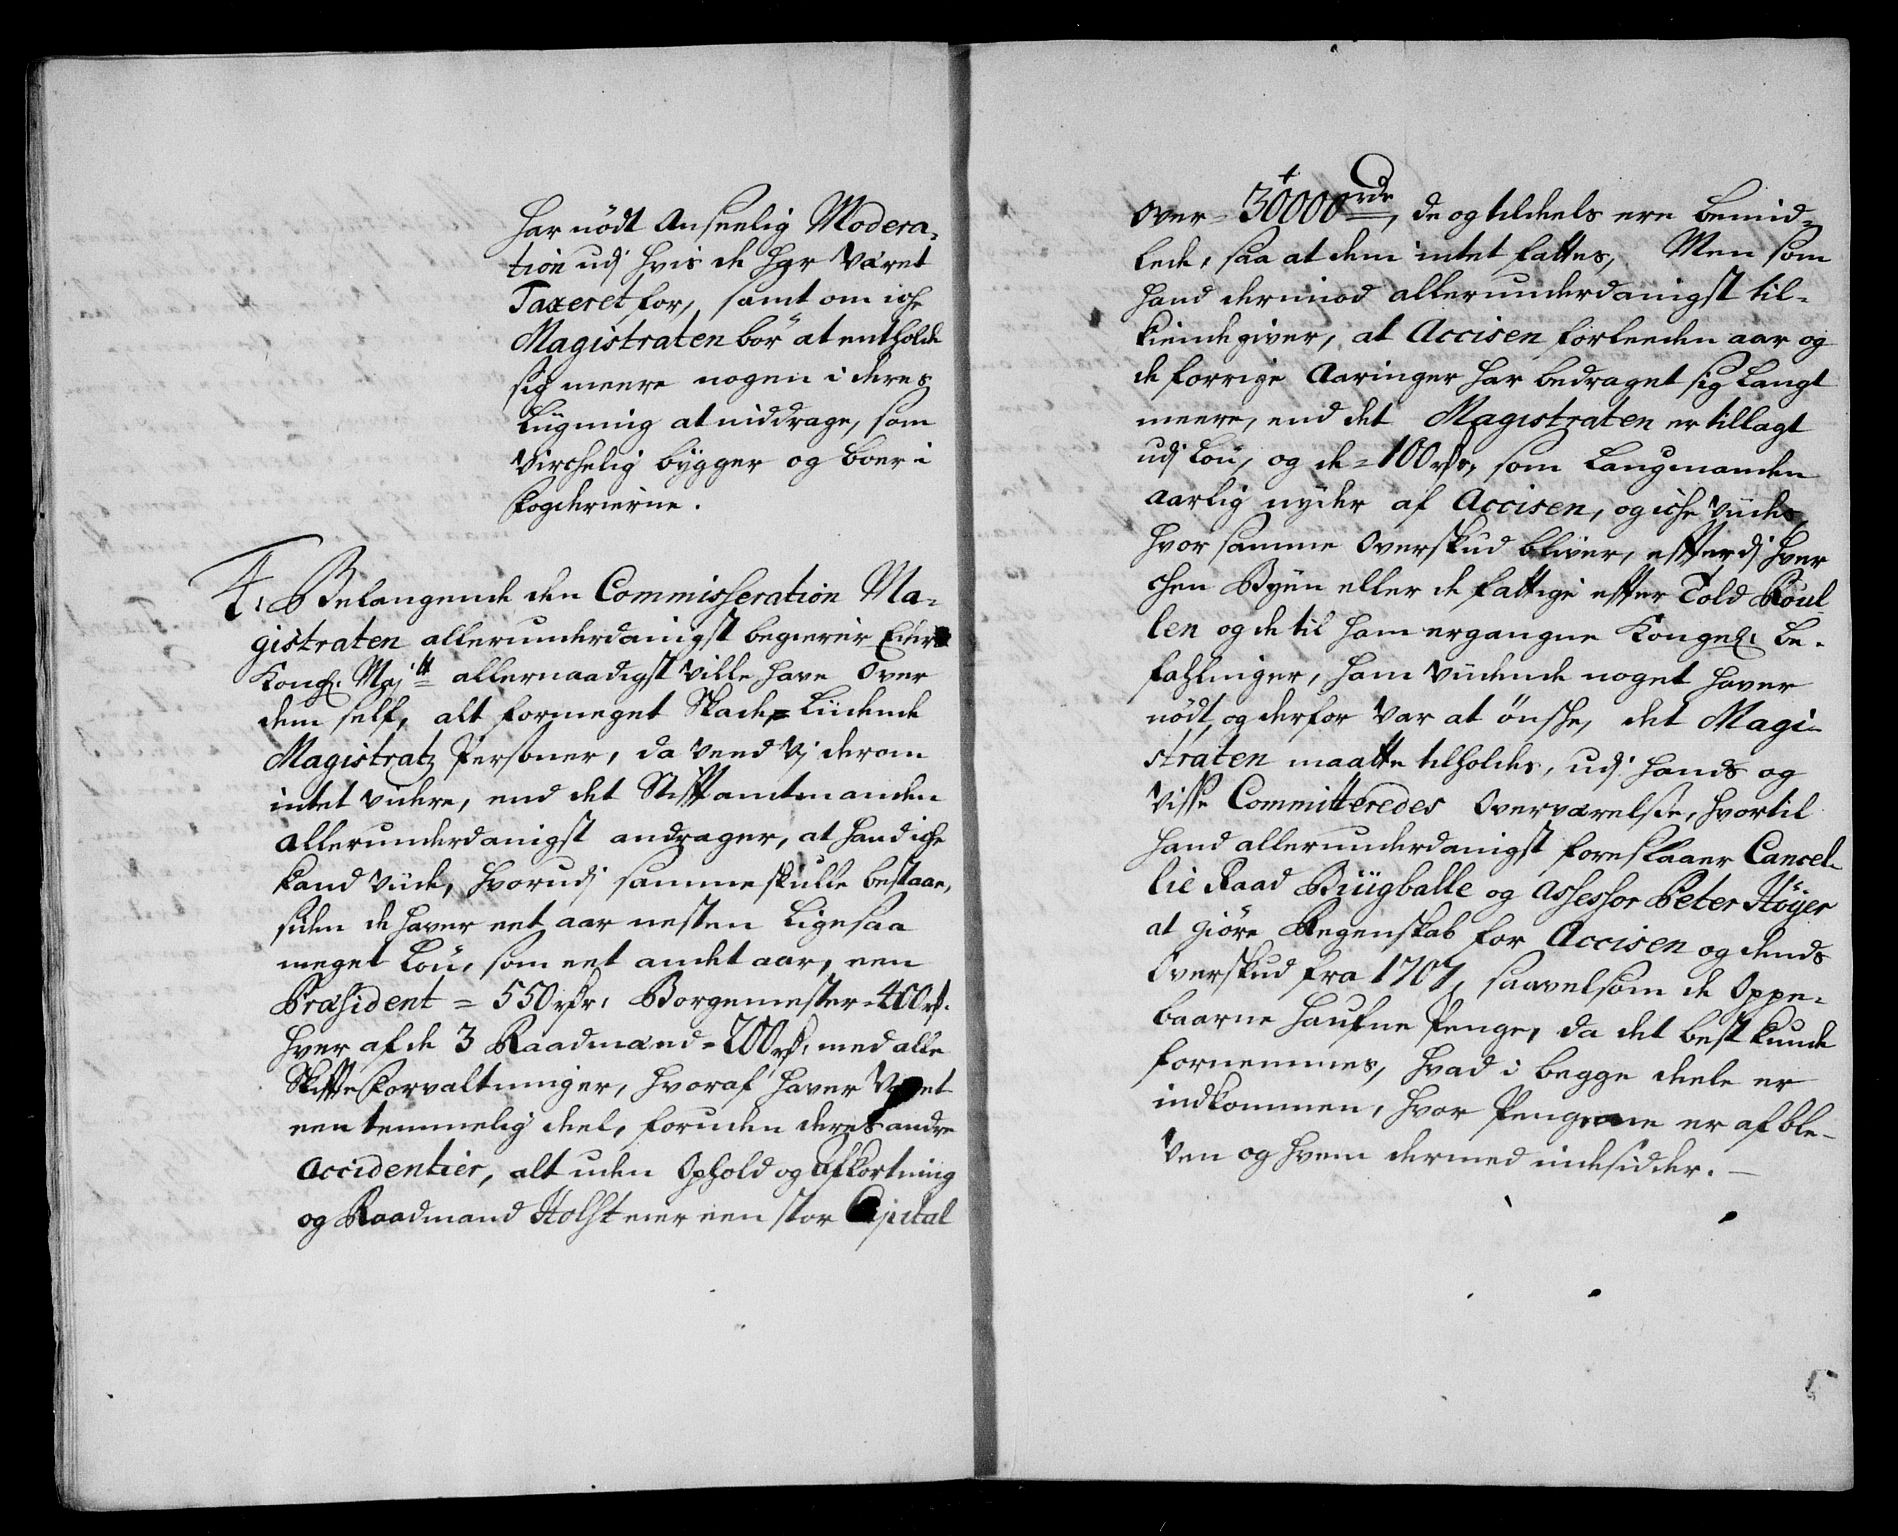 har nödt anseelig Modera-
tion udj hvis de har været
Taxeret for, samt om iche
Magistraten bör at entholde
sig meere nogen i deres
Liigning at inddrage, som
Virchelig bÿgger og boer i
Fogderierne.
4. Belangende den Commisseration Ma-
gistraten allerunderdanigst begierer Eders
Kongl. Maj.tt allernaadigst ville have Over
dem self, alt formeget Skade-Liidende
Magistratz Personer, da veed vj derom
intet videre, end det Stifftamtmanden
allerunderdanigst andrager, at hand iche
kand viide, hvorudj samme skulle bestaae,
siden de haver eet aar nesten ligesaa
meget Lön, som eet andet aar, een
Præsident = 550 rdr. Borgemester = 400 rd.
hver af de 3 Raadmænd = 200 rd. med alle
Skiffte forvaltninger, hvoraf haver været
een temmelig deel, foruden deres andre
Accidentier, alt uden Ophold og afkortning
og Raadmand Holst eier een stor Capital
over = 30000 rdr, de og tildeels ere bemid-
lede, saa at dem intet fattes, Men som
hand dermod allerunderdanigst til-
kiendegiver, at Accisen forleeden aar og
de forrige Aaringer har bedraget sig langt
meere, end det Magistraten er tillagt
udj Lön, og de = 100 rdr, som Laugmanden
aarlig nyder af Accisen, og iche viides,
hvor samme Overskud bliver, efterdj hver
chen Byen eller de fattige effter Told Roul-
len og de til ham ergangne Kongel. be-
fahlinger, ham viidende noget haver
nödt, og derfor var at önske, det Magi-
straten maatte tilholdes, udj hands og
visse Committeredes Overværelse, hvortil
hand allerunderdanigst foreslaaer Cancel-
lie Raad Büigballe og Assessor Peter Höÿer
at giöre Regenskab for Accisen og dends
Overskud fra 1707, saavelsom de Oppe-
baarne Haufne Penge, da det best kunde
fornemmes, hvad i begge deele er
indkommen, hvor Pengene er afble-
ven og hvem dermed indesidder.